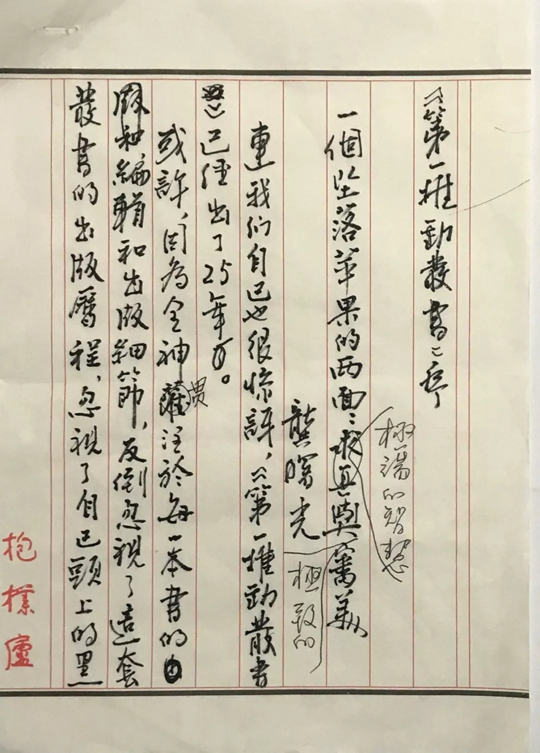 《第一推動叢書》序
一個坠落苹果的两面：求真與審美
極端的智慧
極致的
龔曙光
連我们自己也很惊訝，《第一推動叢書
》已經出了25年了。
或許，因為全神貫注於每一本書的
編輯和出版細節，反倒忽視了這套
叢書的出版曆程，忽視了自己頭上的黑
抱樸廬